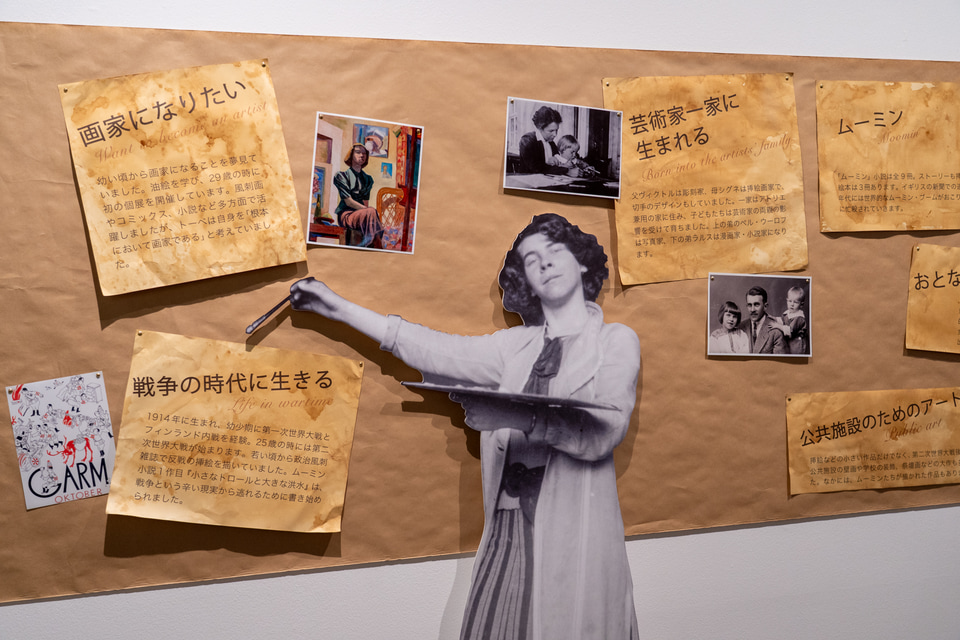 画家になりたい
Want to became an artist
幼い頃から画家になることを夢見て
いました。油絵を学び、29歳の時に
初の個展を開催しています。風刺画
やコミックス、小説など多方面で活
躍しましたが、トーベは自身を「根本
において画家である」と考えていまし
た。
芸術家一家に
生まれる
Born into the artists family
父ヴィクトルは彫刻家、母シグネは挿絵画家で、
切手のデザインもしていました。一家はアトリエ
兼用の家に住み、子どもたちは芸術家の両親の影
響を受けて育ちました。上の弟のペル・ウーロフ
は写真家、下の弟ラルスは漫画家・小説家になり
ます。
ムーミン
Moomin
「ムーミン」小説は全9冊。ストーリーも
絵本は3冊あります。イギリスの新聞での
年代には世界的なムーミン・ブームがおこり
に翻訳されていきます。
おとな
戦争の時代に生きる
Life in wartime
1914年に生まれ、幼少期に第一次世界大戦と
フィンランド内戦を経験。25歳の時には第二
次世界大戦が始まります。若い頃から政治風刺
雑誌で反戦の挿絵を描いていました。ムーミン
小説1作目『小さなトロールと大きな洪水』は、
戦争という辛い現実から逃れるために書き始め
られました。
GARM
OKTOBER
公共施設のためのアート
Public art
挿絵などの小さい作品だけでなく、第二次世界大戦後
公共施設の壁画や学校の装飾、祭壇画などの大作も
た。なかには、ムーミンたちが描かれた作品もあり